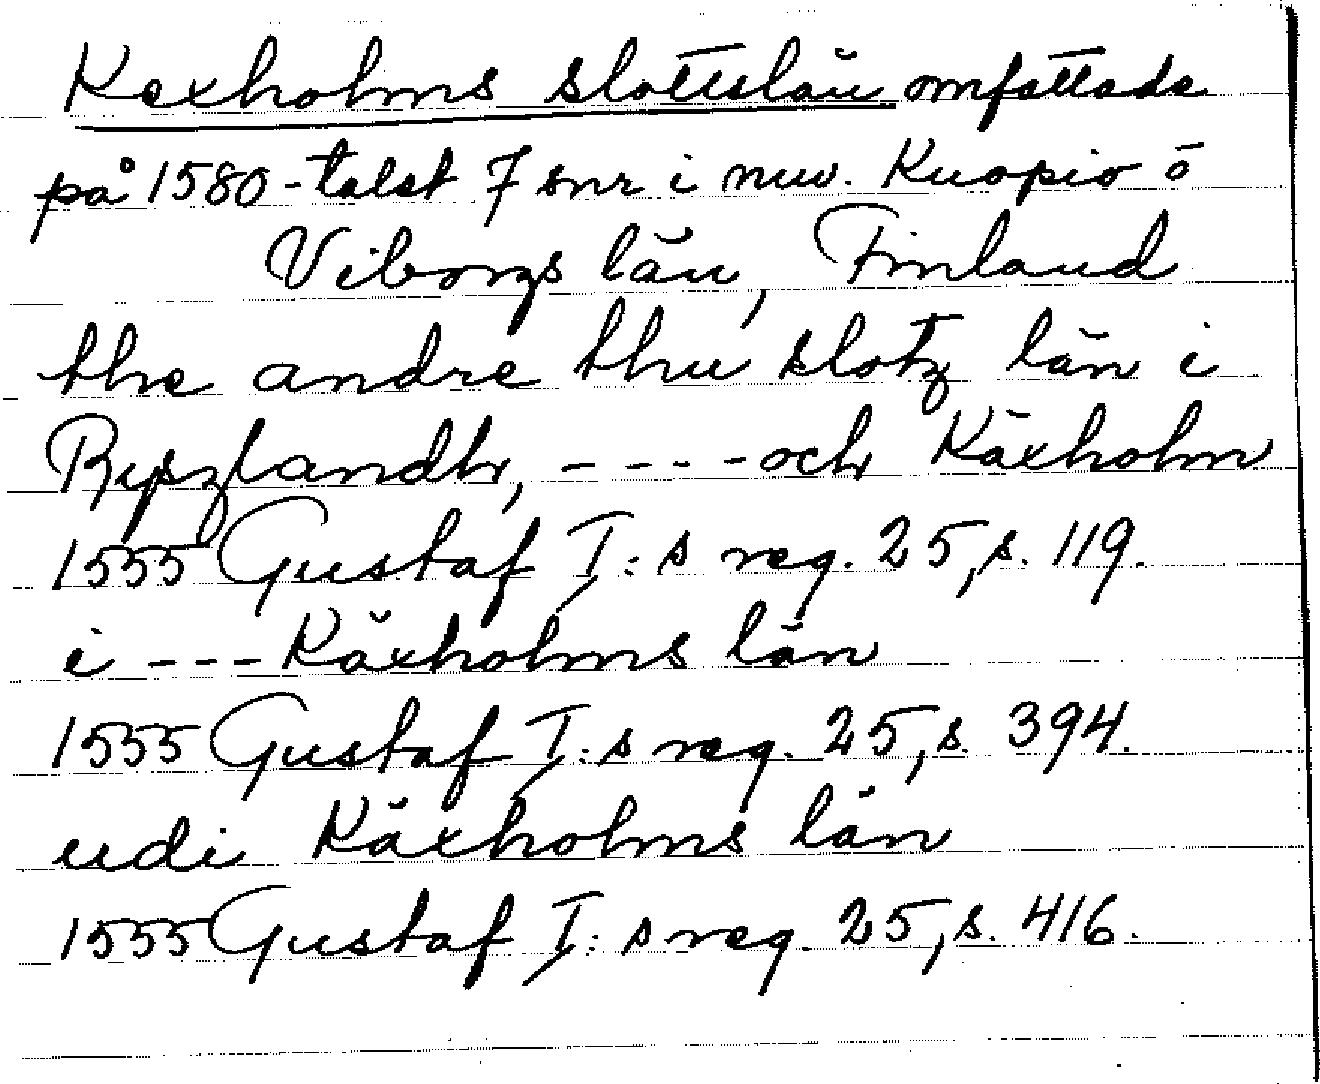 Kexholms slottslän omfattade
på 1580-talet 7 snr i nuv. Kuopio o
Viborgs län, Finland
the andre thu slotz län i
Ryszlandh, ---- och Käxholm
1555 Gustaf I:s reg. 25, s. 119.
i --- Käxholms län
1555 Gustaf I:s reg. 25, s. 394.
udi Käxholms län
1555 Gustaf I:s reg. 25, s. 416.